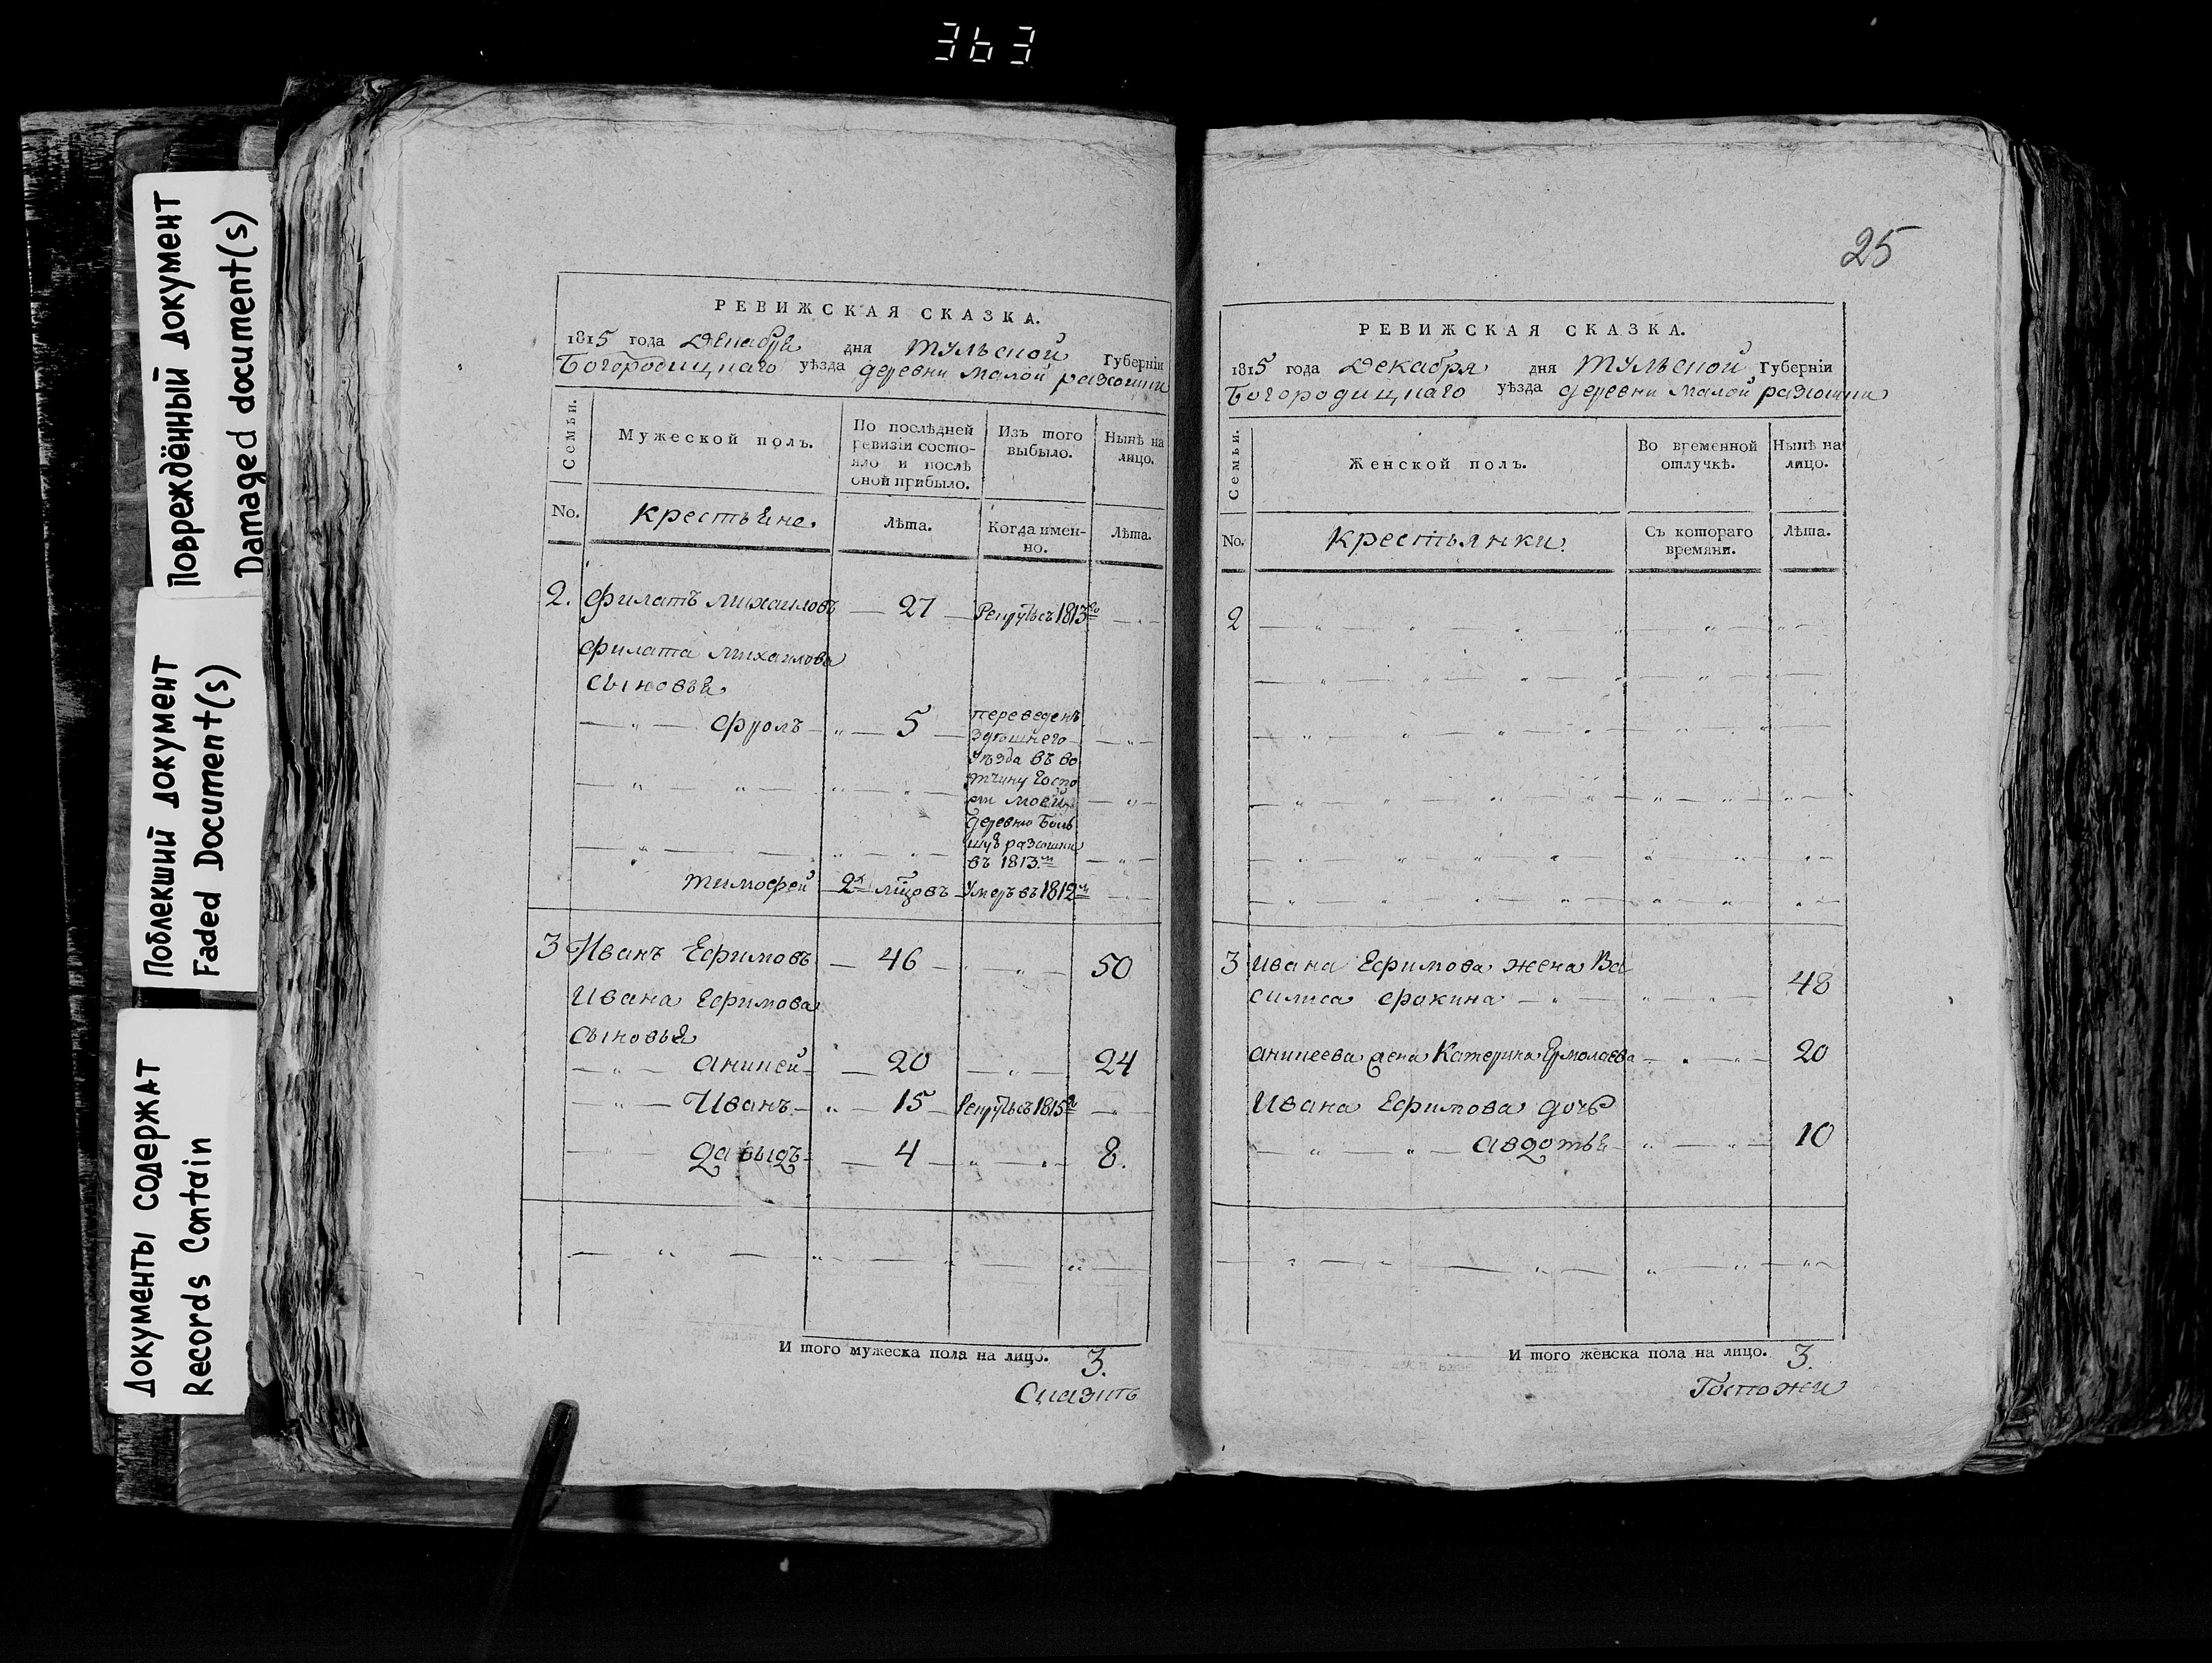 363
Повреждённый документ
Damaged document(s)
Поблекший документ
Faded Document(s)
Документы содержат
Records Contain
РЕВИЖСКАЯ СКАЗКА.
1815 года Декабря дня Тульской Губернїи
Богородицкаго уѣзда деревни малой
Семьи.
Мужеской полъ.
По послѣдней
ревизїи состо-
яло и послѣ
оной прибыло.
Изъ того
выбыло.
Нынѣ на
лицо.
No.
крестьяне.
Лѣта.
Когда имен-
но.
Лѣта.
2. Филатъ Михаиловъ 27 1813го
Филата Михаилова
сыновья
Фролъ 5
переведенъ
здѣшнего
уѣзда въ во
тчину Госпо
жи моей
деревню Боль
шую
въ 1813м
Тимофей 2х мцовъ умеръ въ 1812м
3 Иванъ Ефимовъ 46 50
Ивана Ефимова
сыновья
Аникей 20 24
Иванъ 15 1815
Давыдъ 4 8.
И того мужеска пола на лицо. 3.
25
РЕВИЖСКАЯ СКАЗКА.
1815 года Декабря дня Тульской Губернїи
Богородицкаго уѣзда деревни малой
Семьи.
Женской полъ.
Во временной
отлучкѣ.
Нынѣ на
лицо.
No.
Крестьянки.
Съ котораго
времяни.
Лѣта.
2
3 Ивана Ефимова жена Ва
силиса Фокина 48
Аникеева жена Катерина Ермолаева 20
Ивана Ефимова дочь
Авдотья 10
И того женска пола на лицо. 3.
Госпожи